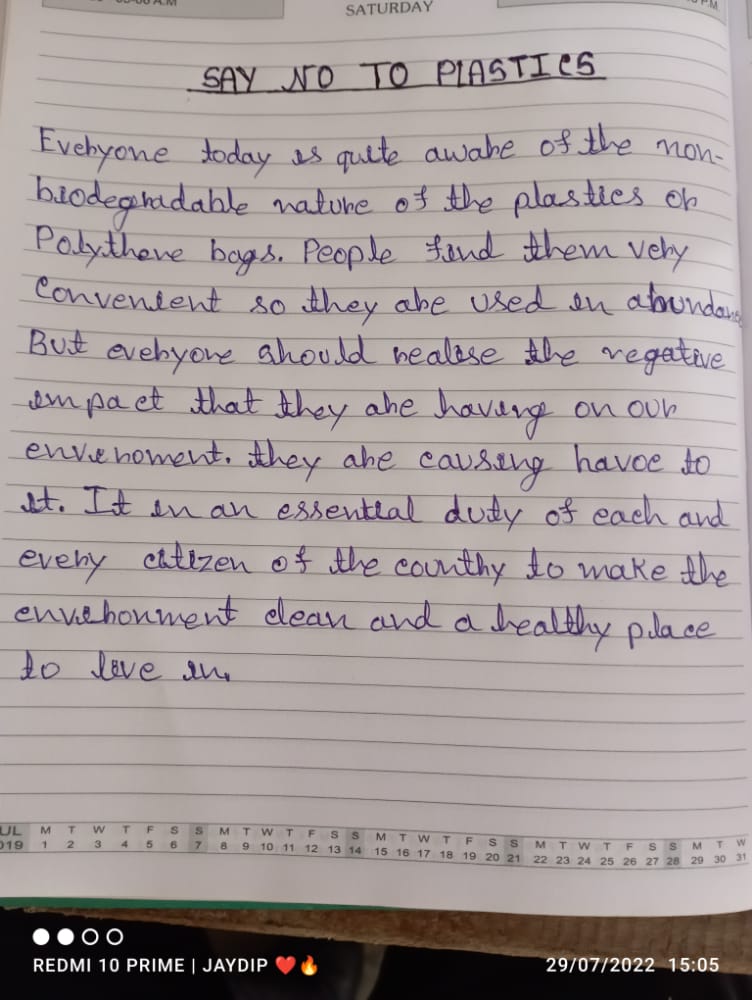 SATURDAY
SAY NO TO PLASTICS
Everyone today is quite aware of the non-
biodegradable nature of the plastics or
Polythene bags. People find them very
Convenient so they are used in abundance
But everyone should realise the negative
impact that they are having on our
envirnoment. they are causing havoc to
it. It in an essential duty of each and
every citizen of the country to make the
environment clean and a healthy place
to live in.
UL M T W T F S S M T W T F S S M T W T F S S M T W T F S S M T W
019 1 2 3 4 5 6 7 8 9 10 11 12 13 14 15 16 17 18 19 20 21 22 23 24 25 26 27 28 29 30 31
REDMI 10 PRIME | JAYDIP ❤️🔥 29/07/2022 15:05